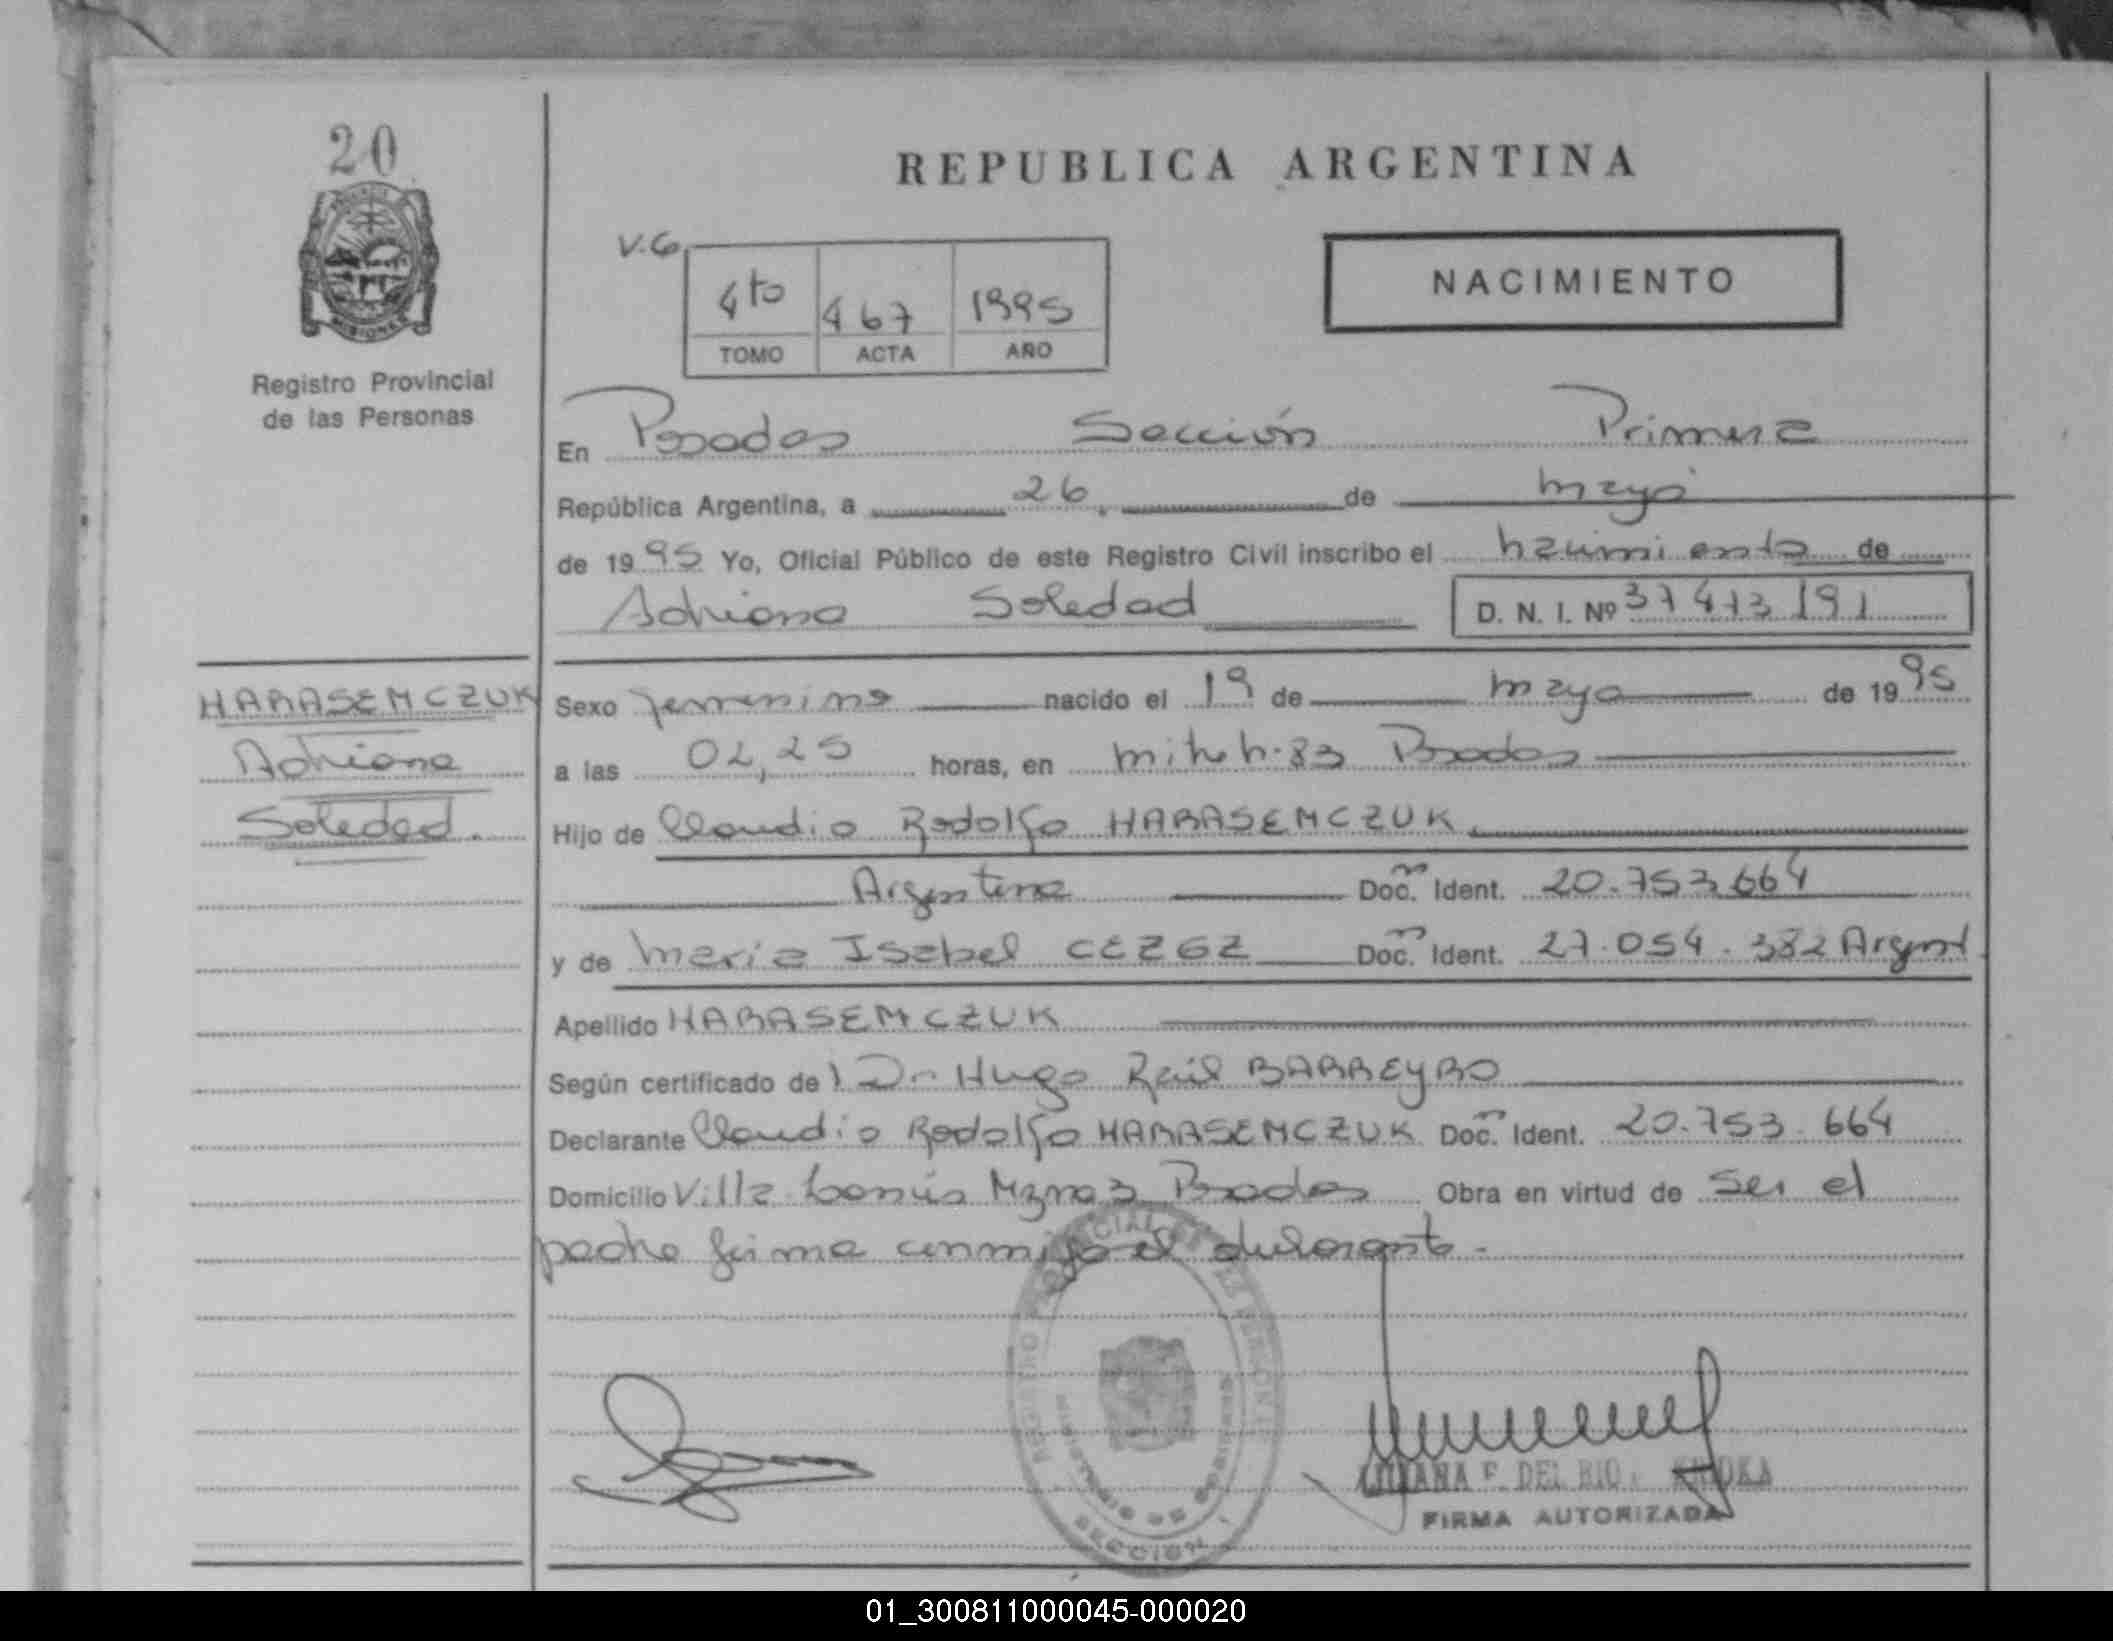 20
REPUBLICA ARGENTINA
V.G.
4to 467 1995
TOMO ACTA AÑO
NACIMIENTO
MISIONES
Registro Provincial
de las Personas
En Posadas Sección Primera
República Argentina, a 26 de mayo
de 1995 Yo, Oficial Público de este Registro Civil inscribo el nacimiento de
Adriana Soledad D. N. I. Nº 37473191
HARASEMCZUK
Adriana
Soledad.
Sexo femenino nacido el 19 de mayo de 1995
a las 02,25 horas, en Posadas
Hijo de Claudio Rodolfo HARASEMCZUK
Argentina Doc. Ident. 20.753.664
y de Maria Isabel Doc. Ident. 27.054.382 Argent
Apellido HARASEMCZUK
Según certificado del Dr Hugo Raúl BARREYRO
Declarante Claudio Rodolfo HARASEMCZUK Doc. Ident. 20.753.664
Domicilio Villa Lanús Mzna 3 Posadas Obra en virtud de ser el
padre firma conmigo el declarante.
SECCION 1
F. DEL RIO
FIRMA AUTORIZADA
01_300811000045-000020